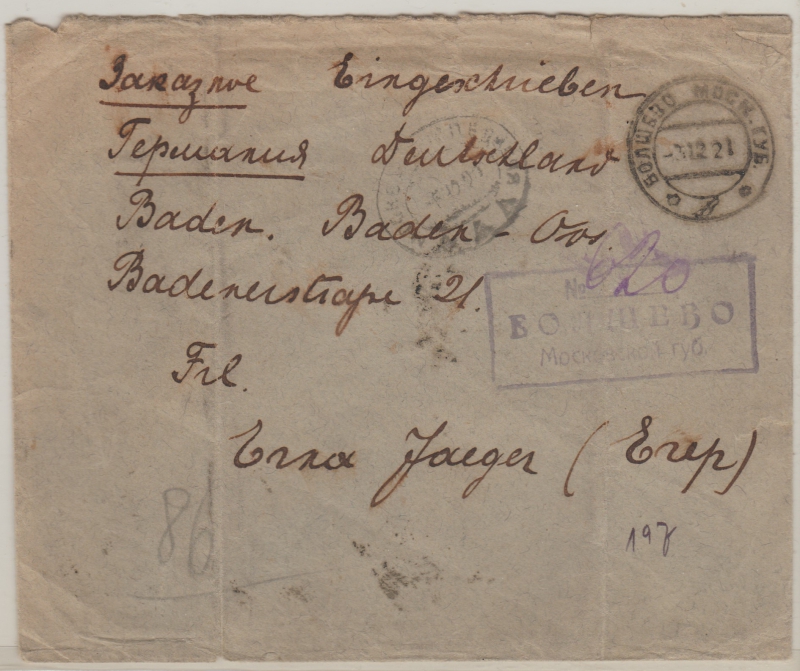 Заказное Eingeschrieben
Германия Deutschland
Baden. Baden - Oos.
Badenerstraße 21.
Frl.
Erna Jaeger (Егер)
БОЛШЕВО МОСК. ГУБ.
-3.12.21
№ 620
БОЛШЕВО
Московской губ.
86
197